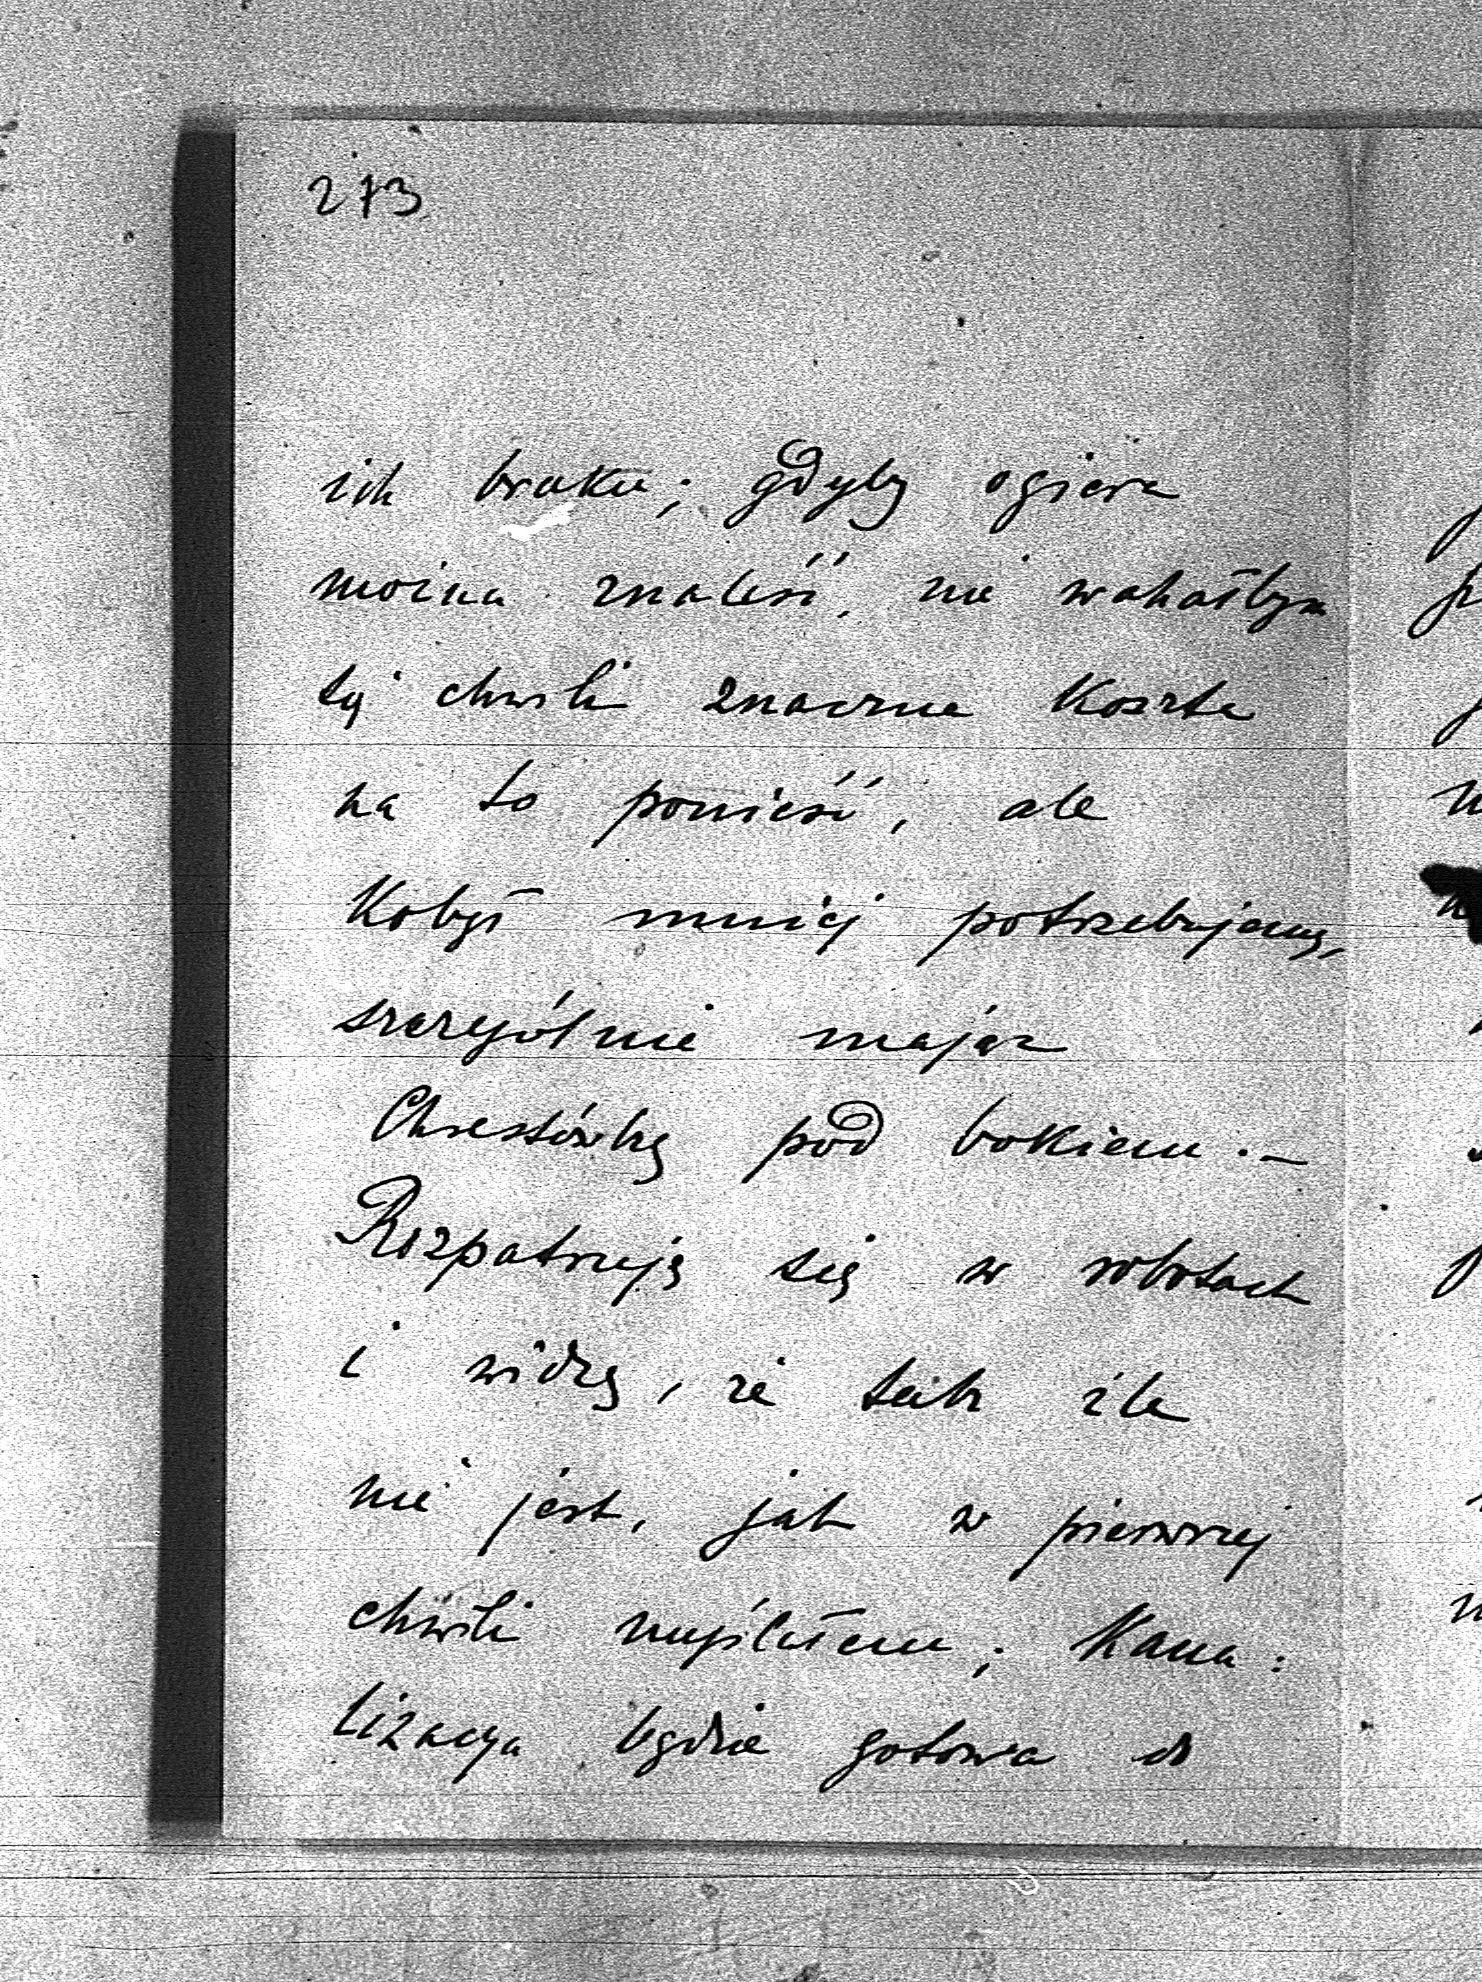 273
ich braku; gdyby ogiera
można znaleść, nie wahałbym
tej chwili znaczne koszta
na to ponieść, ale
kobył mniej potrzebujemy,
szczególnie mając
Chrestówkę pod bokiem.–
Rozpatruję się w robotach
i widzę, że tak źle
nie jest, jak w pierwszej
chwili myślałem; kana:
lizacya będzie gotowa do